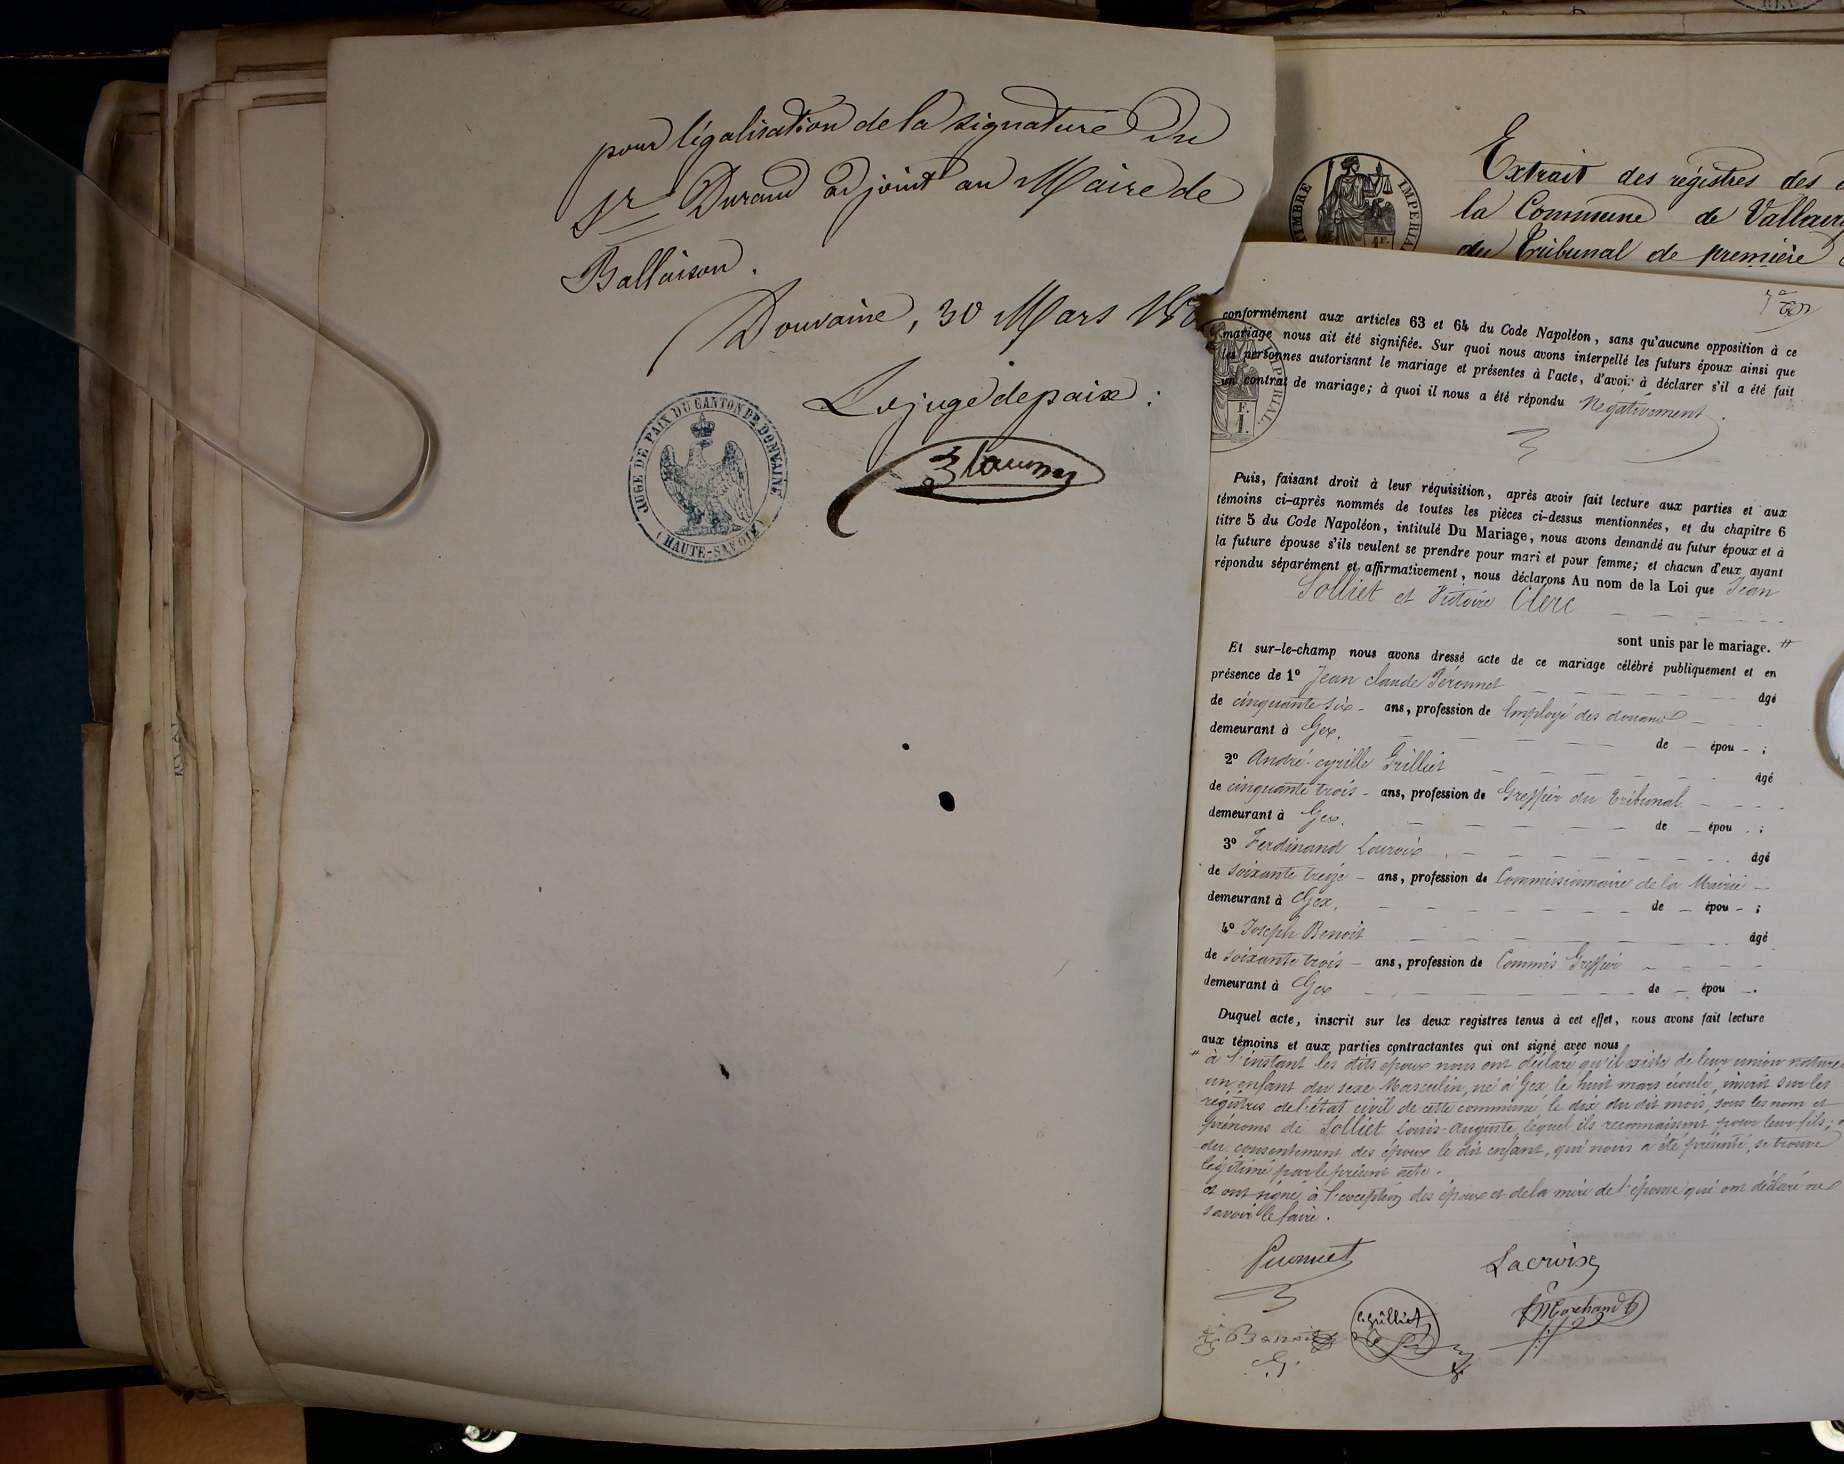 pour légalisation de la signature du
Sr Durand adjoint au Maire de
Ballaison.
Douvaine, 30 Mars
Le juge de paix :
JUGE DE PAIX DU CANTON DE DOUVAINE
(HAUTE-SAVOIE)
TIMBRE IMPERIAL
1 F.
Extrait des régistres des
la Commune de
du Tribunal de première
conformément aux articles 63 et 64 du Code Napoléon, sans qu'aucune opposition à ce
mariage nous ait été signifiée. Sur quoi nous avons interpellé les futurs époux ainsi que
les personnes autorisant le mariage et présentes à l'acte, d'avoir à déclarer s'il a été fait
un contrat de mariage; à quoi il nous a été répondu Négativement.
Puis, faisant droit à leur réquisition, après avoir fait lecture aux parties et aux
témoins ci-après nommés de toutes les pièces ci-dessus mentionnées, et du chapitre 6
titre 5 du Code Napoléon, intitulé Du Mariage, nous avons demandé au futur époux et à
la future épouse s'ils veulent se prendre pour mari et pour femme; et chacun d'eux ayant
répondu séparément et affirmativement, nous déclarons Au nom de la Loi que Jean
Solliet et Victoire Clerc
sont unis par le mariage. #
Et sur-le-champ nous avons dressé acte de ce mariage célébré publiquement et en
présence de 1º Jean Claude Péronnet âgé
de cinquante six - ans, profession de Employé des douanes
demeurant à Gex, de - épou - ;
2º André-cyrille Grilliet âgé
de cinquante trois - ans, profession de Greffier du Tribunal
demeurant à Gex. de - épou - ;
3º Ferdinand âgé
de soixante treize - ans, profession de Commissionnaire de la Mairie -
demeurant à Gex, de - épou - ;
4º Joseph Benoit âgé
de soixante trois - ans, profession de Commis Greffier
demeurant à Gex de - épou -.
Duquel acte, inscrit sur les deux registres tenus à cet effet, nous avons fait lecture
aux témoins et aux parties contractantes qui ont signé avec nous
# à l'instant les dits époux nous ont déclaré qu'il existe de leur union naturelle
un enfant du sexe Masculin, né à Gex le huit mars écoulé, inscrit sur les
régistres de l'état civil de cette commune, le dix du dit mois, sous les nom et
prénoms de Solliet Louis-Auguste, lequel ils reconnaissent pour leur fils;
du consentement des époux le dit enfant, qui nous a été présenté, se trouve
légitimé par le présent acte.
et ont signé à l'exception des époux et de la mère de l'épouse qui ont déclaré ne
savoir le faire.
Peronnet
Lacroix
Benoit
Grilliet
Marchand